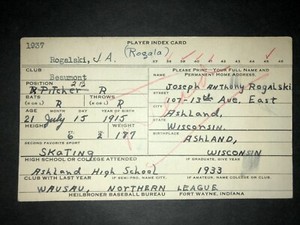 PLAYER INDEX CARD
1937
(Rogala)
Rogalski, J. A.
CLUB
Beaumont
PLEASE PRINT YOUR FULL NAME AND
PERMANENT HOME ADDRESS
POSITION 2B
R Pitcher R
Joseph Anthony Rogalski
BATS THROWS
(R OR L) R (R OR L) R
107-13th Ave. East
DATE OF BIRTH
21 July 15 1915
Ashland,
Wisconsin.
HEIGHT WEIGHT
6 2 187
BIRTHPLACE
ASHLAND,
SECOND FAVORITE SPORT
SKATING
WISCONSIN
HIGH SCHOOL OR COLLEGE ATTENDED
IF GRADUATE, GIVE YEAR
Ashland High School
1933
CLUB WITH LAST YEAR
WAUSAU, NORTHERN LEAGUE
HEILBRONER BASEBALL BUREAU
FORT WAYNE, INDIANA